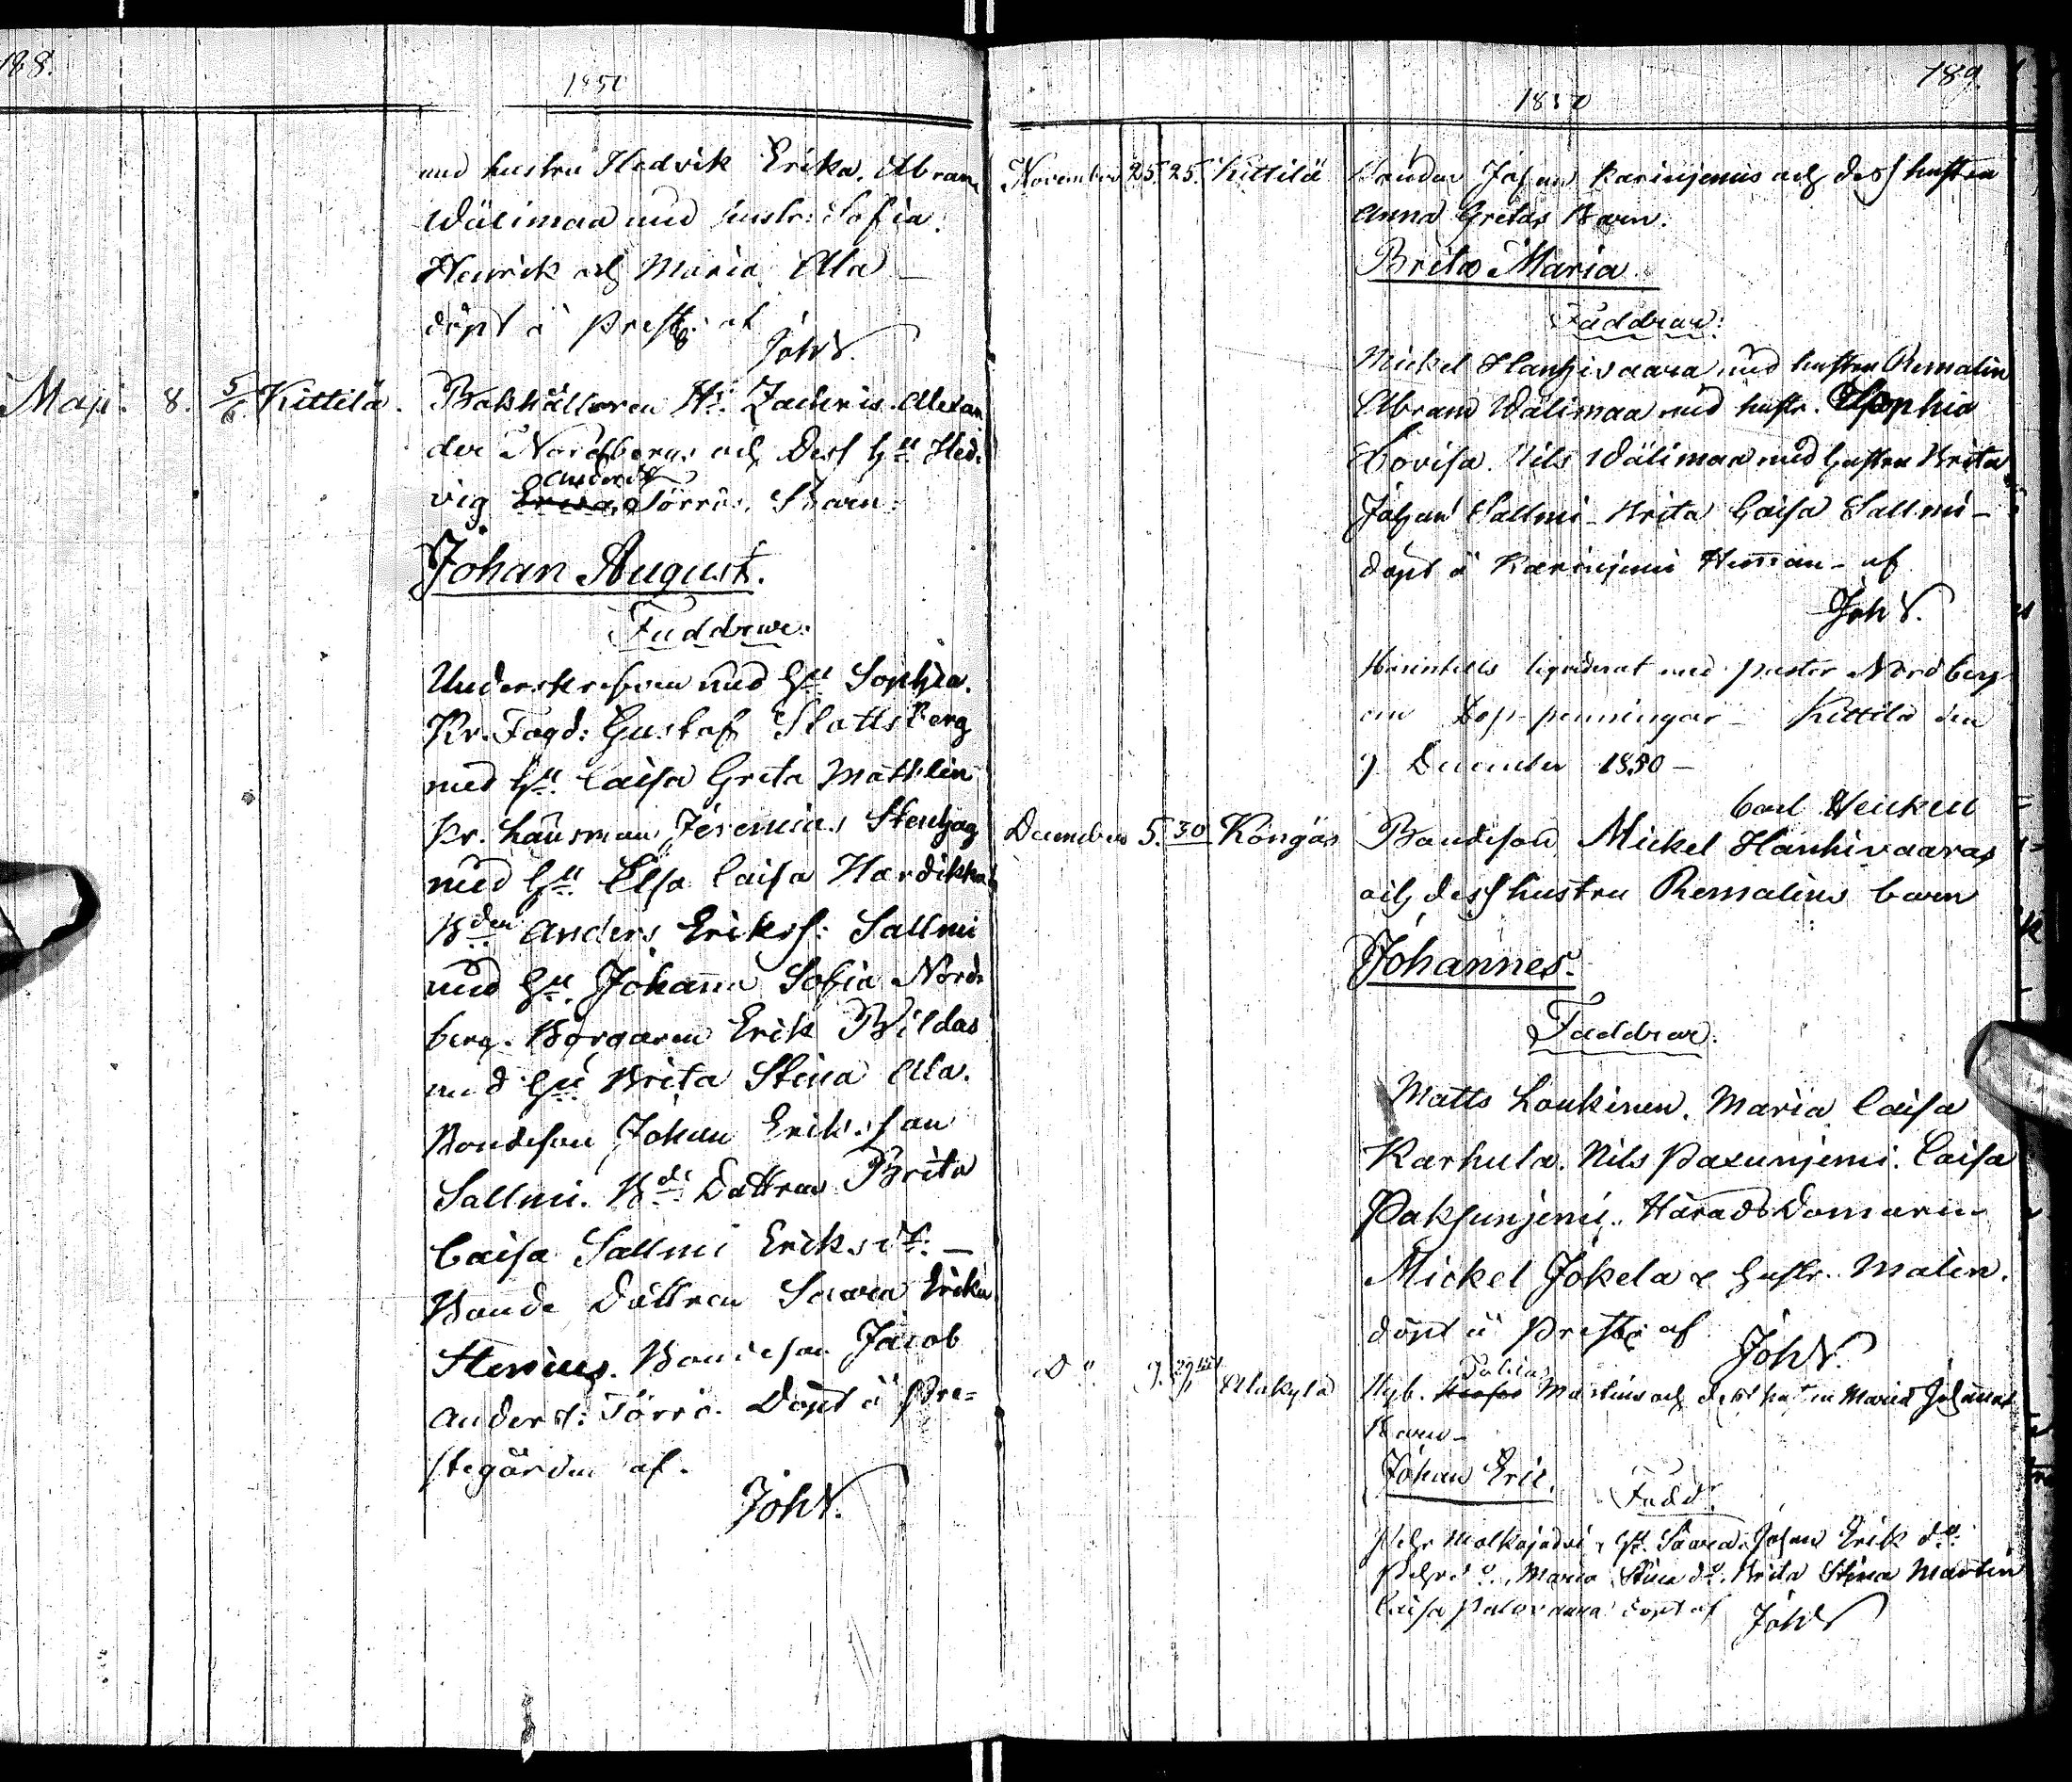 188.
1850
med hustru Hedvik Erika. Abram
Wälimaa med hustr: Sofia.
Henrik och Maria Ala —
döpt i Prestg: af
JohN.
Maji. 8. 5/6 Kittilä. Bokhållaren Hr. Zachris Alexan
der Nordbergs och dess hu Hed-
vig Erica Törrös, Barn:
Johan August.
Faddrar:
Underskrefven med Hu Sophia.
Kr. Fogd: Gustaf Slottsberg
med Hu Caisa Greta Mathlin
Kr. Länsman Jeremias Stenhag
med Hu Elsa Caisa Hardikka
Bden Anders Erikss: Sallmi
med Hu Johanna Sofia Nord-
berg. Borgaren Erik Wildas
med Hu Brita Stina Ala.
Bondeson Johan Eriksson
Sallmi. Bde Dottren Brita
Caisa Sallmi Eriksdr. —
Bonde Dottren Saara Erika
Stenius. Bondeson Jacob
Anders: Törrö. Döpt i Pre=
stegården af.
JohN.
189.
1850
November 25. 25. Kittilä Bonden Johan Karinjemis och dess hustru
Anna Gretas Barn.
Brita Maria.
Faddrar:
Mickel Hanhivaara med hustru Remalin
Abram Wälimaa med hustr. Sophia
Lovisa. Nils Wälimaa med hustru Brita
Johan Sallmi - Brita Caisa Sallmi -
döpt i Karinjemi Hemman - af
JohN.
liquiderat med Pastor Nordberg
om Dop-penningar - Kittilä den
9 December 1850 —
Carl Heickell
December 5. 30 Köngäs Bondeson Mickel Hanhivaaras
och dess hustru Remalins barn
Johannes.
Faddrar:
Matts Loukinen. Maria Caisa
Karhula. Nils Paxunjemi. Caisa
Paksunjemi. HäradsDomaren
Mickel Jokela & hustr. Malin.
döpt i Prestg af
JohN.
Do 9. Alakylä Nyb. Tobias Martins och dess hustru Maria Johannas
Barn -
Johan Eric.
Fadd:
Pehr Molkojärvi & Hu. Saara. Johan Erik do
Pehr do. Maria Stina do. Brita Stina Martin
Caisa Palovaara döpt af JohN